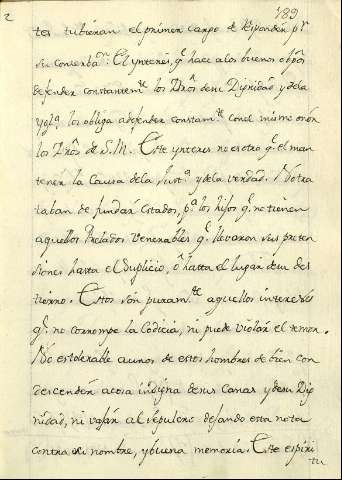 2 189
tos tubieran el primer cargo de responder pr
su conserbaon. El ynteres, qe hace a los buenos obpos
defender constantemte los Dros de su Dignidad y de la
Yglª los obliga a defender constamte con el mismo
los Dros de S. M. Este ynteres no es otro qe el man
tener la Causa de la Justª y de la verdad. No tra
taban de fundar Estados, pª los hijos qe no tienen
aquellos Prelados Venerables qe llevaron sus preten
siones hasta el Suplicio, ó hasta el lugar de su des
tierro. Estos son puramte aquellos intereses
qe no corrompe la Codicia, ni puede violar el temor.
No es tolerable a unos de estos hombres de bien con
descender a cosa indigna de sus Canas y de su Dig
nidad, ni vajar al sepulcro dejando esta nota
contra su nombre, y buena memoria. Este espiri
tu